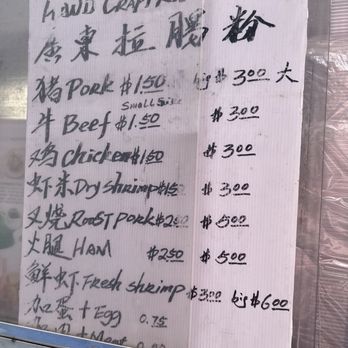 廣東拉腸粉
猪 Pork $1.50 big $3.00 大
Small Size
牛 Beef $1.50 $3.00
鸡 Chicken $1.50 $3.00
虾米 Dry shrimp $1.50 $3.00
叉烧 Roast Pork $2.50 $5.00
火腿 HAM $2.50 $5.00
鮮虾 Fresh shrimp $3.00 big $6.00
加蛋 + Egg 0.75